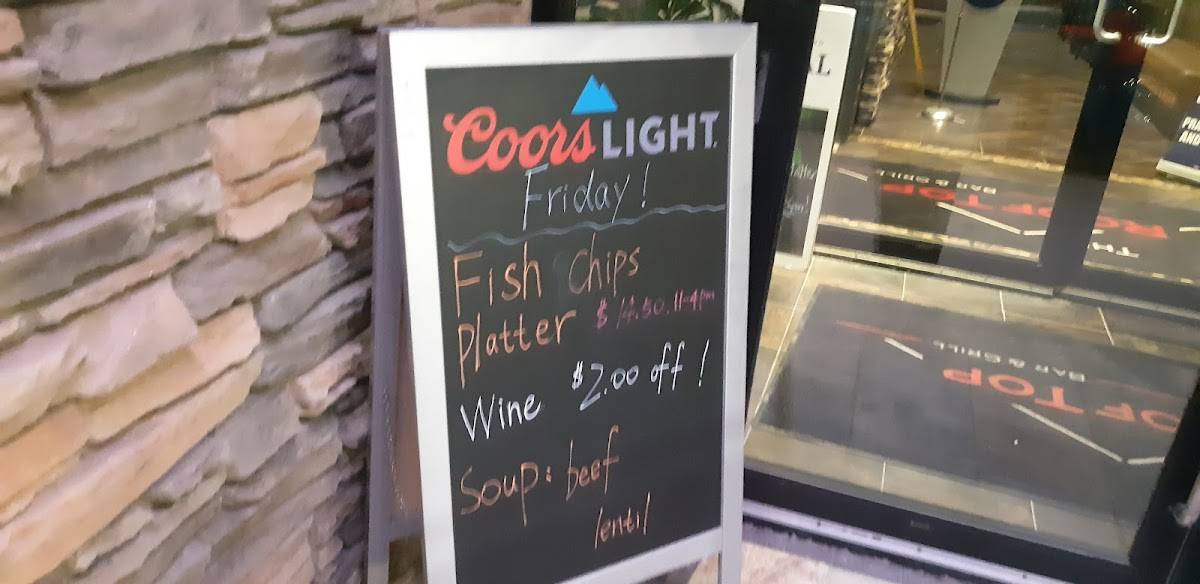 Coors LIGHT
Friday!
Fish Chips
Platter $14.50.11-4pm
Wine $2.00 off!
Soup: beef
lentil
TH ROOFTOP
BAR & GRILL
OFTOP
BAR & GRILL